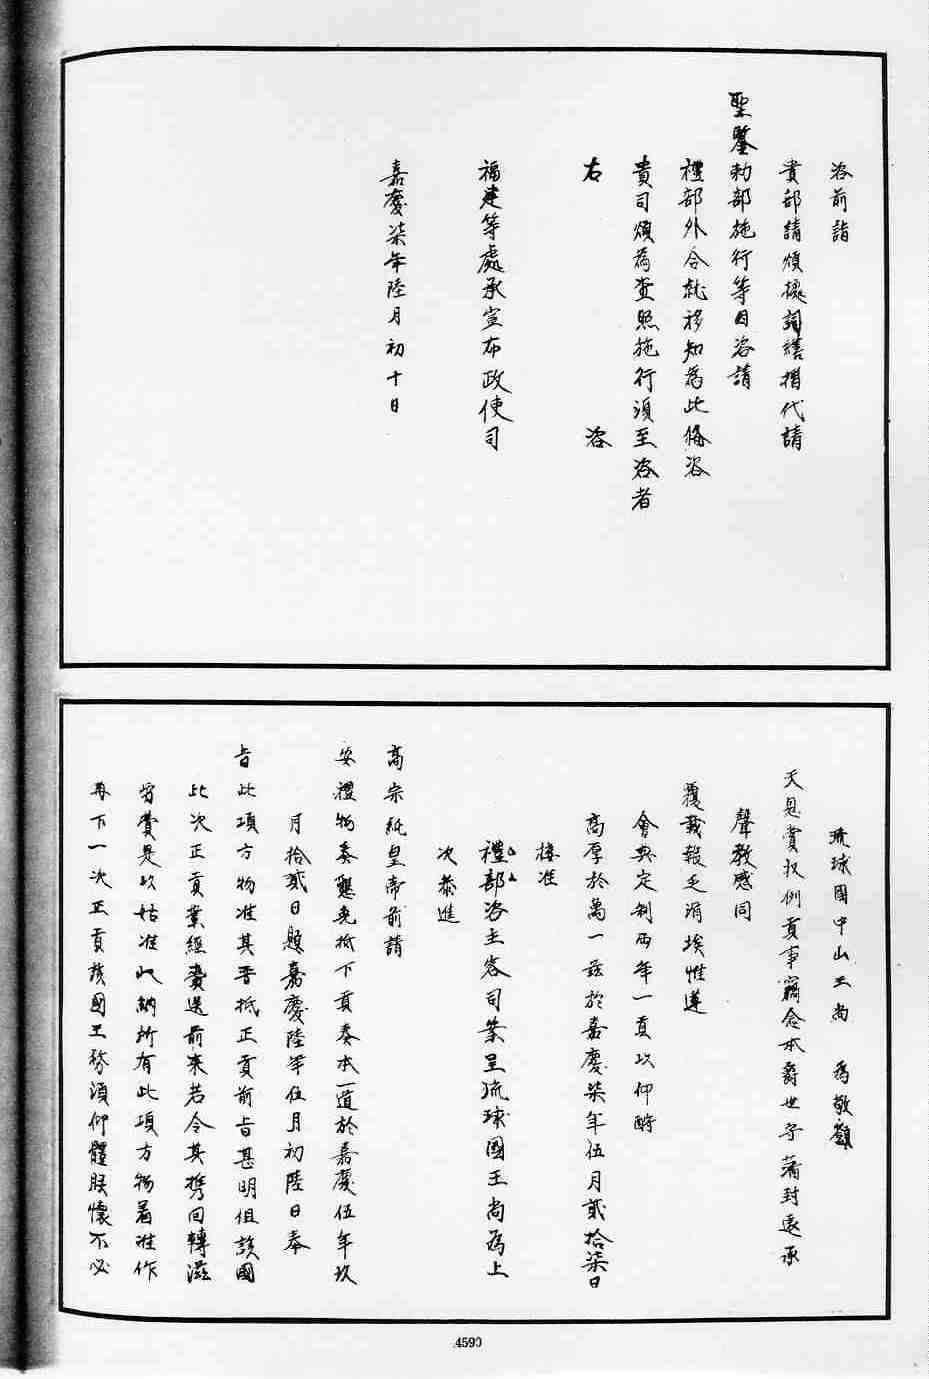 咨前詣
貴部請煩據詞繕摺代請
聖鑒勅部施行等因咨請
禮部外合就移知為此備咨
貴司煩為查照施行須至咨者
右　　　　咨
福建等處承宣布政使司
嘉慶柒年陸月初十日
琉球國中山王尚　為敬籲
天恩賞收例貢事竊念本爵世守藩封遠承
聲教感同
覆載報乏涓埃惟遵
會典定制兩年一貢以仰酧
高厚於萬一茲於嘉慶柒年伍月貳拾柒日
接准
禮部咨主客司案呈琉球國王尚為上
次恭進
高宗純皇帝前請
安禮物奏懇免抵下貢奏本一道於嘉慶伍年玖
月拾貳日題嘉慶陸年伍月初陸日奉
旨此項方物准其晋抵正貢前旨甚明但該國
此次正貢業經賫送前來若令其携回轉滋
労費是以姑准收納所有此項方物着准作
再下一次正貢該國王務須仰體朕懷不必
4590